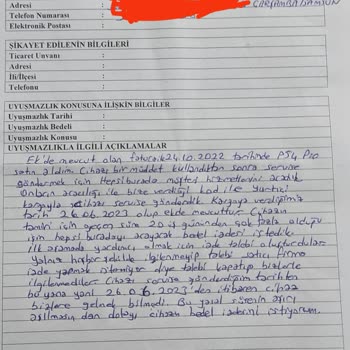 Adresi :
ÇARŞAMBA SAMSUN
Telefon Numarası :
Elektronik Postası :
ŞİKAYET EDİLENİN BİLGİLERİ
Ticaret Unvanı :
Adresi :
İli/İlçesi :
Telefonu :
UYUŞMAZLIK KONUSUNA İLİŞKİN BİLGİLER
Uyuşmazlık Tarihi :
Uyuşmazlık Bedeli :
Uyuşmazlık Konusu :
UYUŞMAZLIKLA İLGİLİ AÇIKLAMALAR
Ek'de mevcut olan faturalı 24.10.2022 tarihinde PS4 Pro
satın aldım. Cihazı bir müddet kullandıktan sonra servise
göndermek için Hepsiburada müşteri hizmetlerini aradık
Onların aracılığı ile bize verdiği kod ile Yurtiçi
kargoyla cihazı servise gönderdik Kargoya verdiğimiz
tarih 26.06.2023 olup ekde mevcuttur Cihazın
tamiri için geçen süre 20 iş gününden çok fazla olduğu
için hepsiburadayı arayarak bedel iadesi istedik.
ilk aramada yardımcı olmak için iade talebi oluşturdular
Yalnız hiçbir şekilde ilgilenmeyip talebi satıcı firma
iade yapmak istemiyor diye talebi kapatıp bizlerle
ilgilenmediler Cihazı servise gönderdiğim tarihten
bu yana yani 26.06.2023'den itibaren cihaz
bizlere gelmek bilmedi. Bu yasal sürenin aşırı
aşılmasından dolayı cihazın bedel iadesini istiyorum.